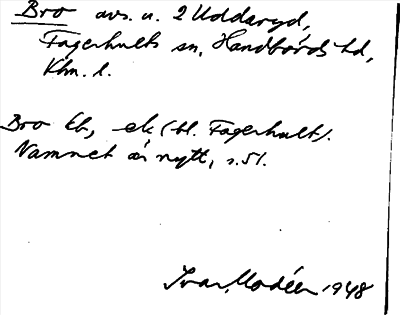 Bro avs. u. 2 Uddaryd,
Fagerhults sn, Handbörds hd,
Klm. l.
Bro tb, ek (bl. Fagerhult).
Namnet är nytt, s. 51.
Ivar Modéer 1948